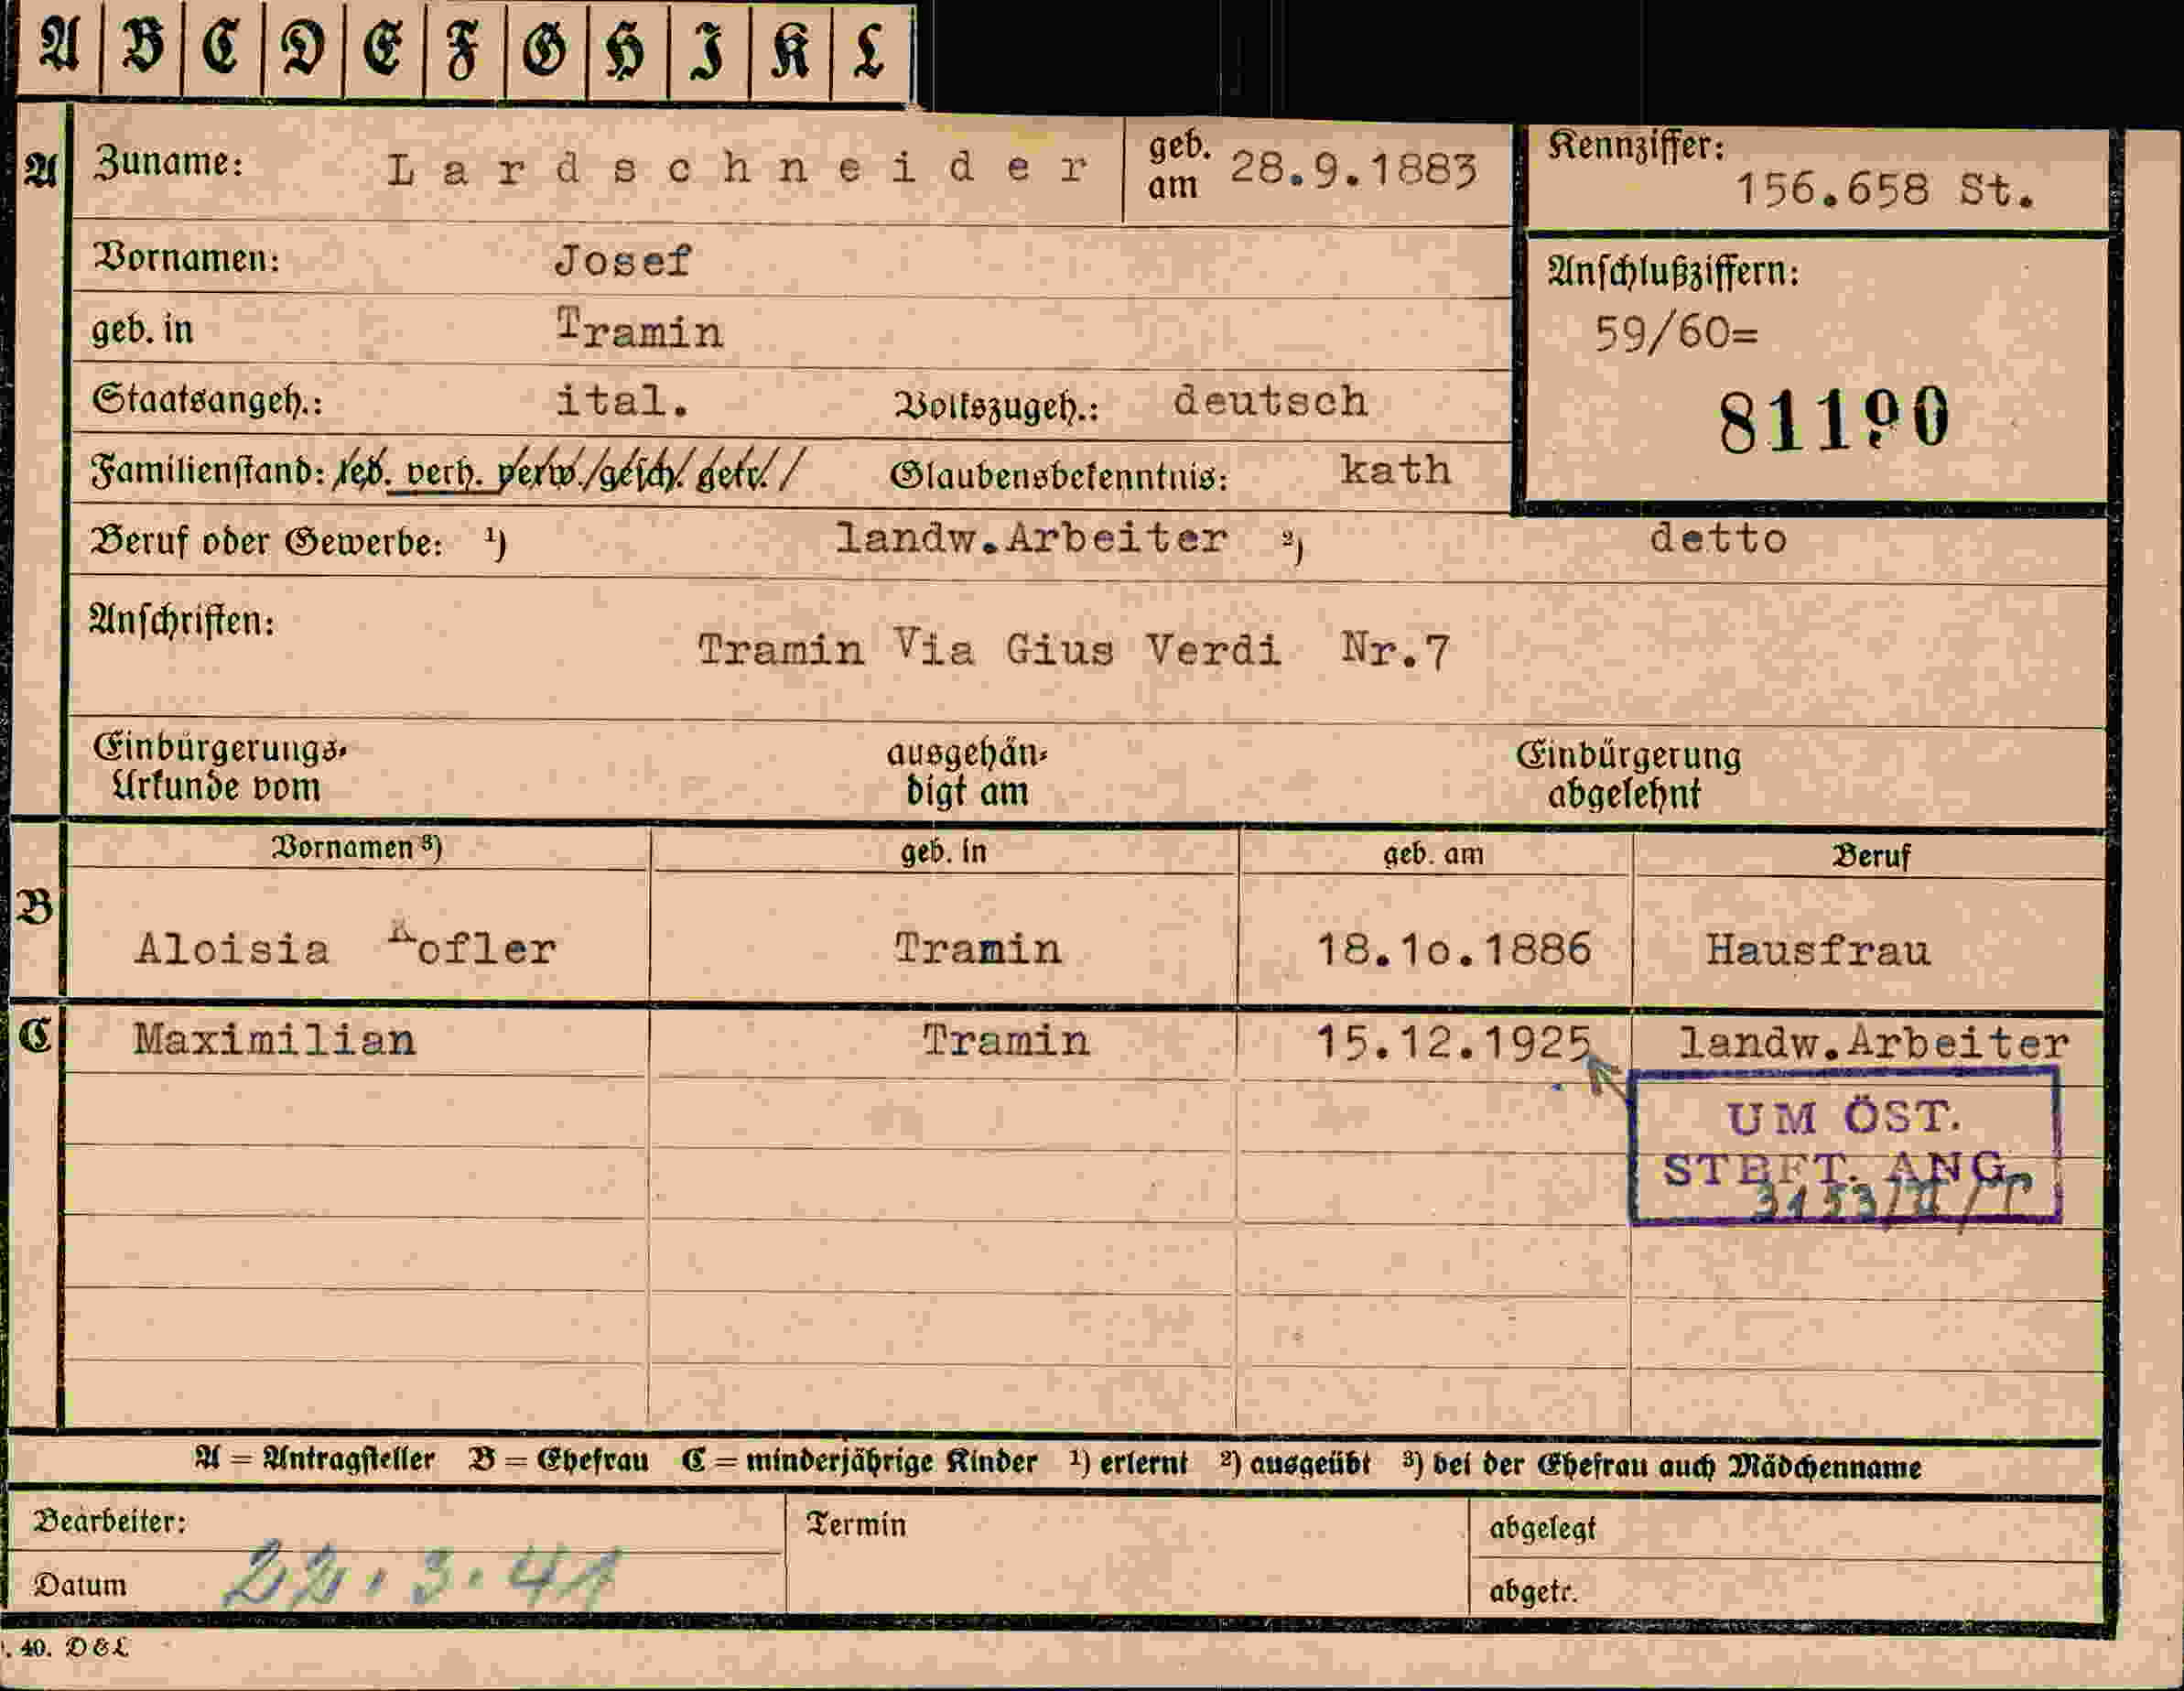 A B C D E F G H I K L
A Zuname: Lardschneider geb. am 28.9.1883 Kennziffer: 156.658 St.
Vornamen: Josef
Anschlußziffern:
geb. in Tramin 59/60=
Staatsangeh.: ital. Volkszugeh.: deutsch
81190
Familienstand: led. verh. verw. gesch. getr. Glaubensbekenntnis: kath
Beruf oder Gewerbe: ¹) landw.Arbeiter ²) detto
Anschriften:
Tramin Via Gius Verdi Nr.7
Einbürgerungs- ausgehän- Einbürgerung
Urkunde vom digt am abgelehnt
Vornamen ³) geb. in geb. am Beruf
B
Aloisia Kofler Tramin 18.10.1886 Hausfrau
C Maximilian Tramin 15.12.1925 landw.Arbeiter
UM ÖST.
STBFT. ANG.
A = Antragsteller B = Ehefrau C = minderjährige Kinder ¹) erlernt ²) ausgeübt ³) bei der Ehefrau auch Mädchenname
Bearbeiter: Termin abgelegt
Datum 22.3.41 abgetr.
. 40. D&L